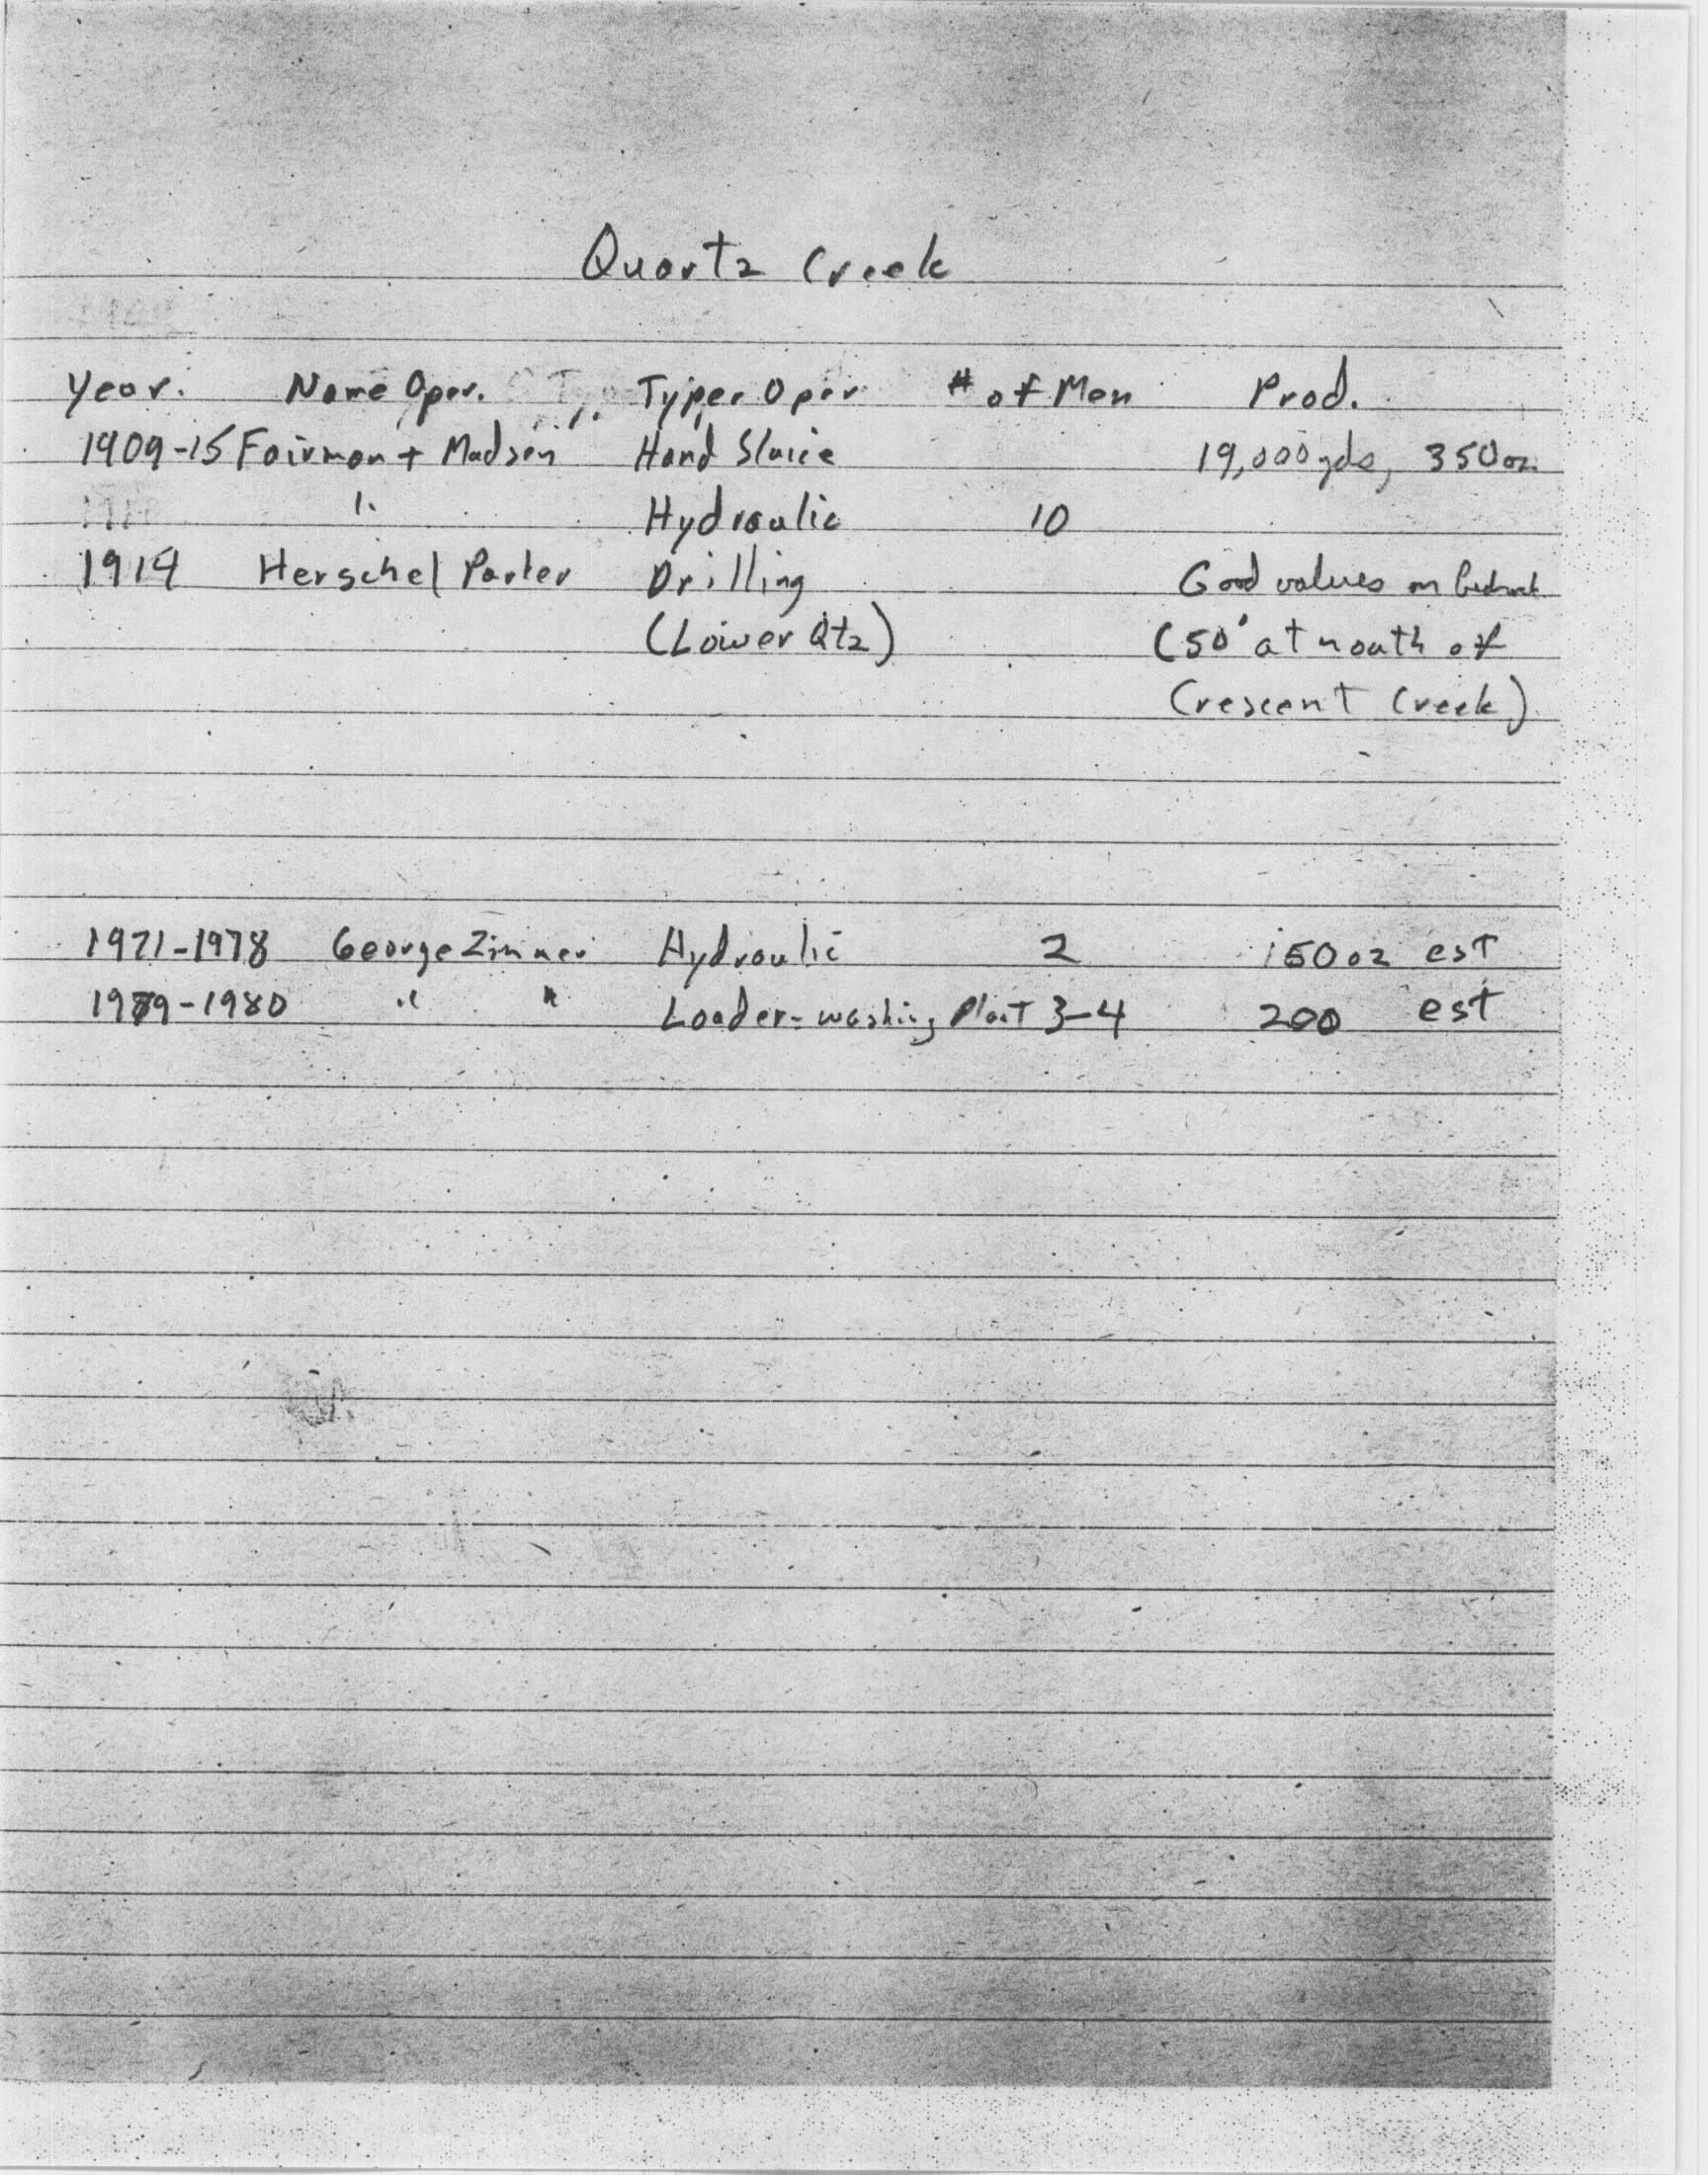 Quartz Creek
Year. Name Oper. Type Oper # of Men Prod.
1909-15 Fairman + Madsen Hand Sluice 19,000 yds, 350 oz.
" Hydraulic 10
1914 Herschel Parker Drilling Good values on bedrock
(Lower Qtz) (50' at mouth of
Crescent Creek)
1971-1978 George Zimmer Hydraulic 2 150 oz est
1979-1980 " " Loader-washing Plant 3-4 200 est